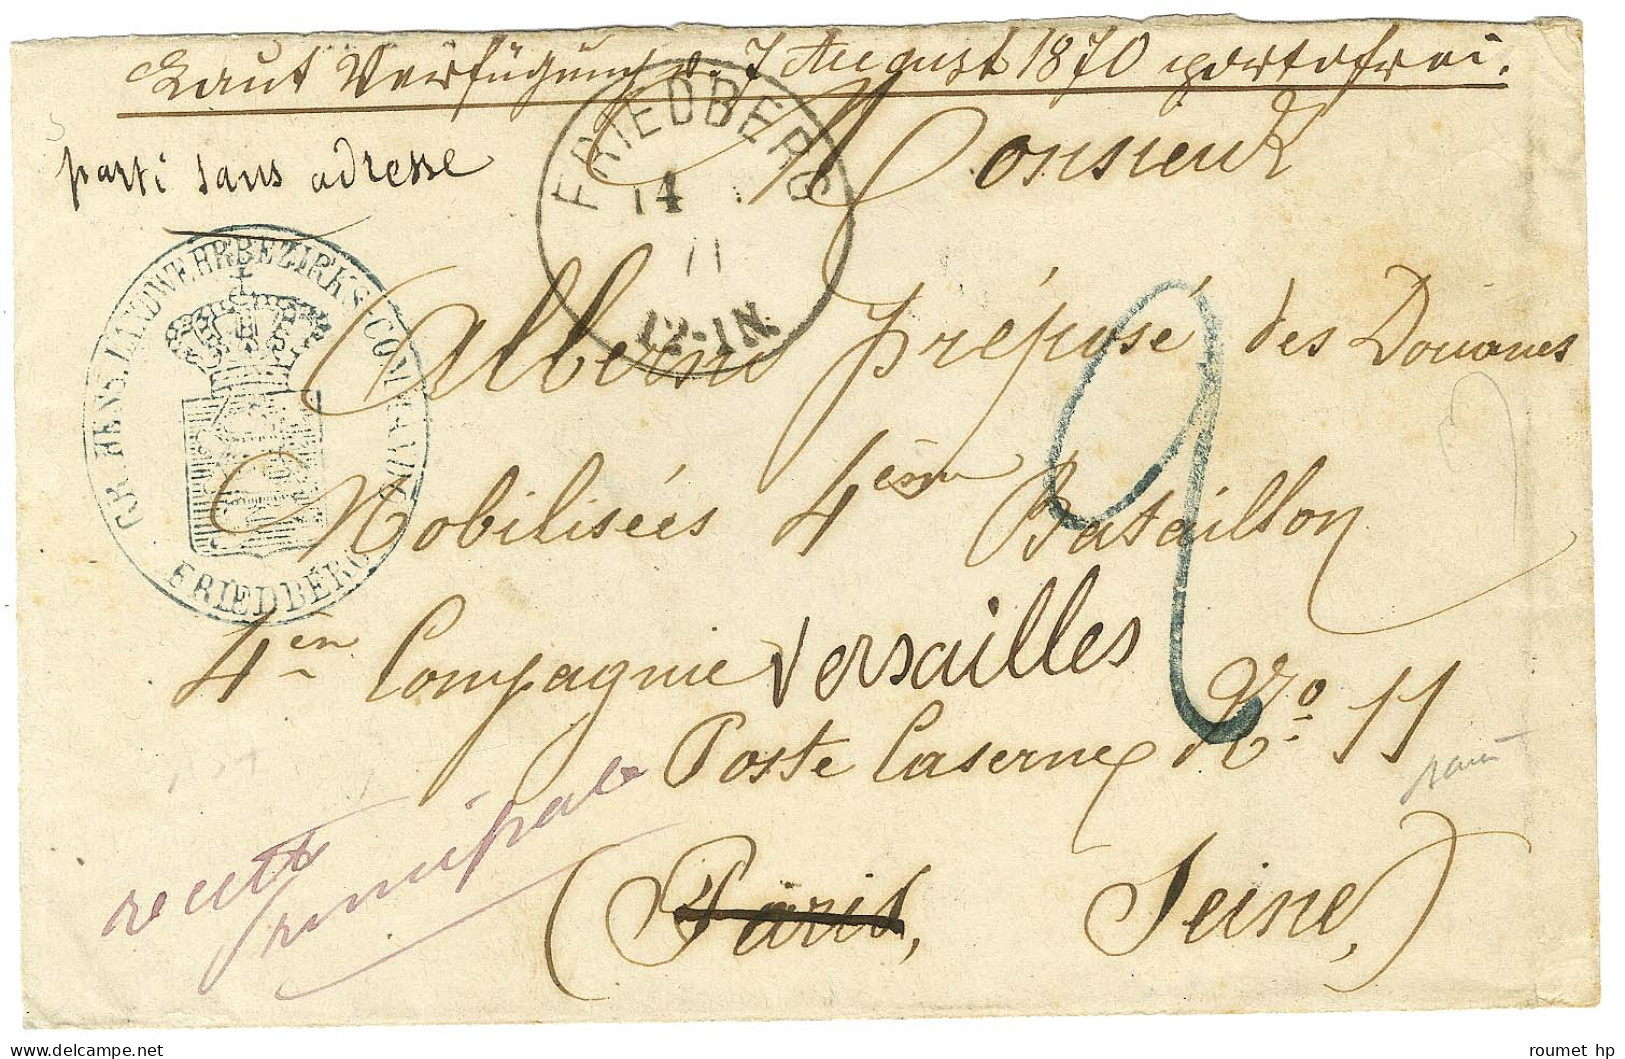 Laut Verfügung v. 7 August 1870 portofrei.
parti sans adresse
Monsieur
FRIEDBERG
14
11
12-1N.
GR. HESS. LANDWEHRBEZIRKS-COMMANDO
FRIEDBERG
Alberni préposé des Douanes
Mobilisées 4ème Bataillon
4en Compagnie Versailles
Poste Caserne No. 11
recette
principale
(Paris, Seine,)
2
roumet hp